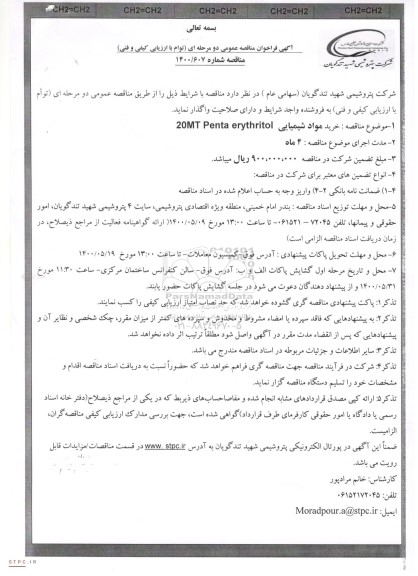 CH2=CH2 CH2=CH2 CH2=CH2 CH2=CH2 CH2=CH2
بسمه تعالی
آگهی فراخوان مناقصه عمومی دو مرحله ای (توام با ارزیابی کیفی و فنی)
مناقصه شماره ۱۴۰۰/۶۰۷
شرکت پتروشیمی شهید تندگویان
شرکت پتروشیمی شهید تندگویان (سهامی عام ) در نظر دارد مناقصه با شرایط ذیل را از طریق مناقصه عمومی دو مرحله ای (توأم
با ارزیابی کیفی و فنی) به فروشنده واجد شرایط و دارای صلاحیت واگذار نماید.
۱-موضوع مناقصه : خرید مواد شیمیایی 20MT Penta erythritol
۲-مدت اجرای موضوع مناقصه : ۴ ماه
۳-مبلغ تضمین شرکت در مناقصه ۹۰۰,۰۰۰,۰۰۰ ریال میباشد.
۴-انواع تضمین های معتبر برای شرکت در مناقصه:
۴-۱) ضمانت نامه بانکی ۴-۲) واریز وجه به حساب اعلام شده در اسناد مناقصه
۵-محل و مهلت توزیع اسناد مناقصه : بندر امام خمینی، منطقه ویژه اقتصادی پتروشیمی، سایت ۴ پتروشیمی شهید تندگویان، امور
حقوقی و پیمانها، تلفن ۷۲۰۴۵ - ۰۶۱۵۲۱- تا ساعت ۱۳:۰۰ مورخ ۱۴۰۰/۰۵/۰۹( ارائه گواهینامه فعالیت از مراجع ذیصلاح، در
زمان دریافت اسناد مناقصه الزامی است)
۶-محل و مهلت تحویل پاکات پیشنهادی : آدرس فوق-کمیسیون معاملات- تا ساعت ۱۳:۰۰ مورخ ۱۴۰۰/۰۵/۱۹
۷- محل و تاریخ مرحله اول گشایش پاکات الف و ب: آدرس فوق- سالن کنفرانس ساختمان مرکزی- ساعت ۱۱:۳۰ مورخ
۱۴۰۰/۰۵/۳۱ و از پیشنهاد دهندگان دعوت می شود در جلسه گشایش پاکات حضور یابند.
ParsNamadData
تذکر۱: پاکت پیشنهادی مناقصه گری گشوده خواهد شد که حد نصاب امتیاز ارزیابی کیفی را کسب نمایند.
تذکر۲: به پیشنهادهایی که فاقد سپرده یا امضاء مشروط و مخدوش و سپرده های کمتر از میزان مقرر، چک شخصی و نظایر آن و
پیشنهادهایی که پس از انقضاء مدت مقرر در آگهی واصل شود مطلقاً ترتیب اثر داده نخواهد شد.
تذکر۳: سایر اطلاعات و جزئیات مربوطه در اسناد مناقصه مندرج می باشد.
تذکر۴: شرکت در فرآیند مناقصه جهت مناقصه گری فراهم خواهد شد که حضوراً نسبت به دریافت اسناد مناقصه اقدام و
مشخصات خود را تسلیم دستگاه مناقصه گزار نماید.
تذکر۵: ارائه کپی مصدق قراردادهای مشابه انجام شده و مفاصاحساب‌های ذیربط که در یکی از مراجع ذیصلاح(دفتر خانه اسناد
رسمی یا دادگاه یا امور حقوقی کارفرمای طرف قرارداد)گواهی شده است، جهت بررسی مدارک ارزیابی کیفی مناقصه‌گران،
الزامیست.
ضمناً این آگهی در پورتال الکترونیکی پتروشیمی شهید تندگویان به آدرس www. stpc.ir در قسمت مناقصات/مزایدات قابل
رویت می باشد.
کارشناس: خانم مرادپور
تلفن: ۰۶۱۵۲۱۷۲۰۴۵
ایمیل: Moradpour.a@stpc.ir
STPC.IR